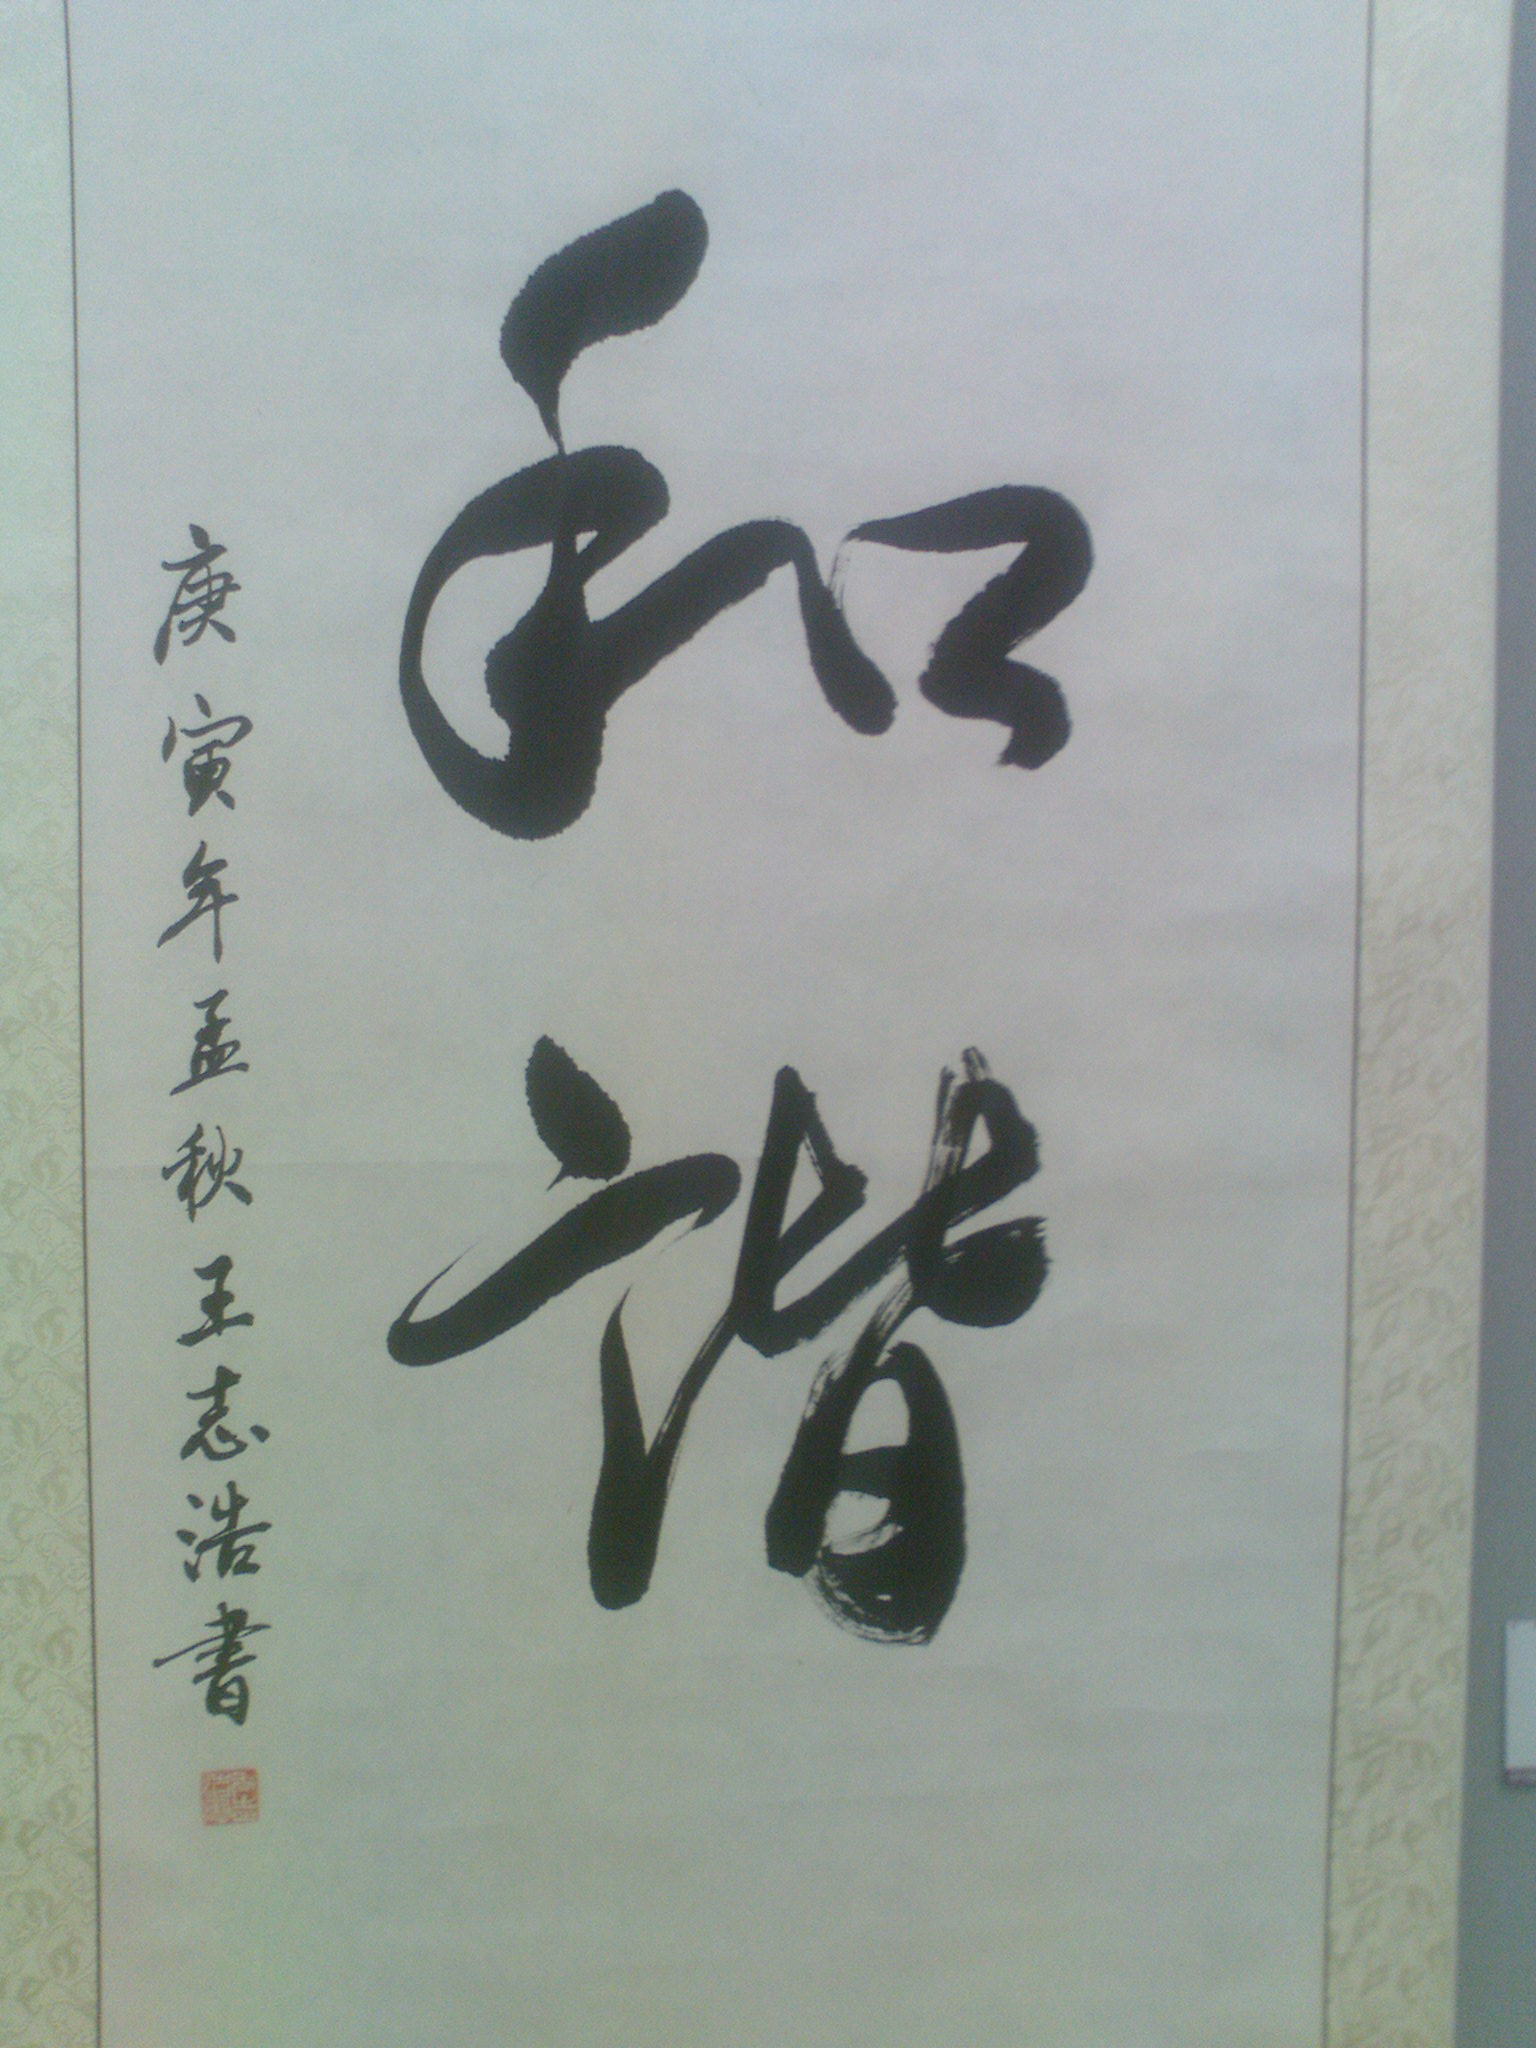 和谐
庚寅年孟秋王志浩書